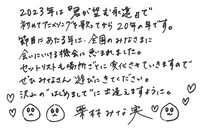 2023年は"君が望む永遠"で
初めてアニメソングを歌ってから20年の年です。
節目にあたる年に、全国のみなさまに
会いにいける機会に恵まれました。
セットリストも場所ごとに変化させていきますので
ぜひみなさん遊びにきてください。
沢山の"はじめまして"に出逢えますように。
栗林みな実